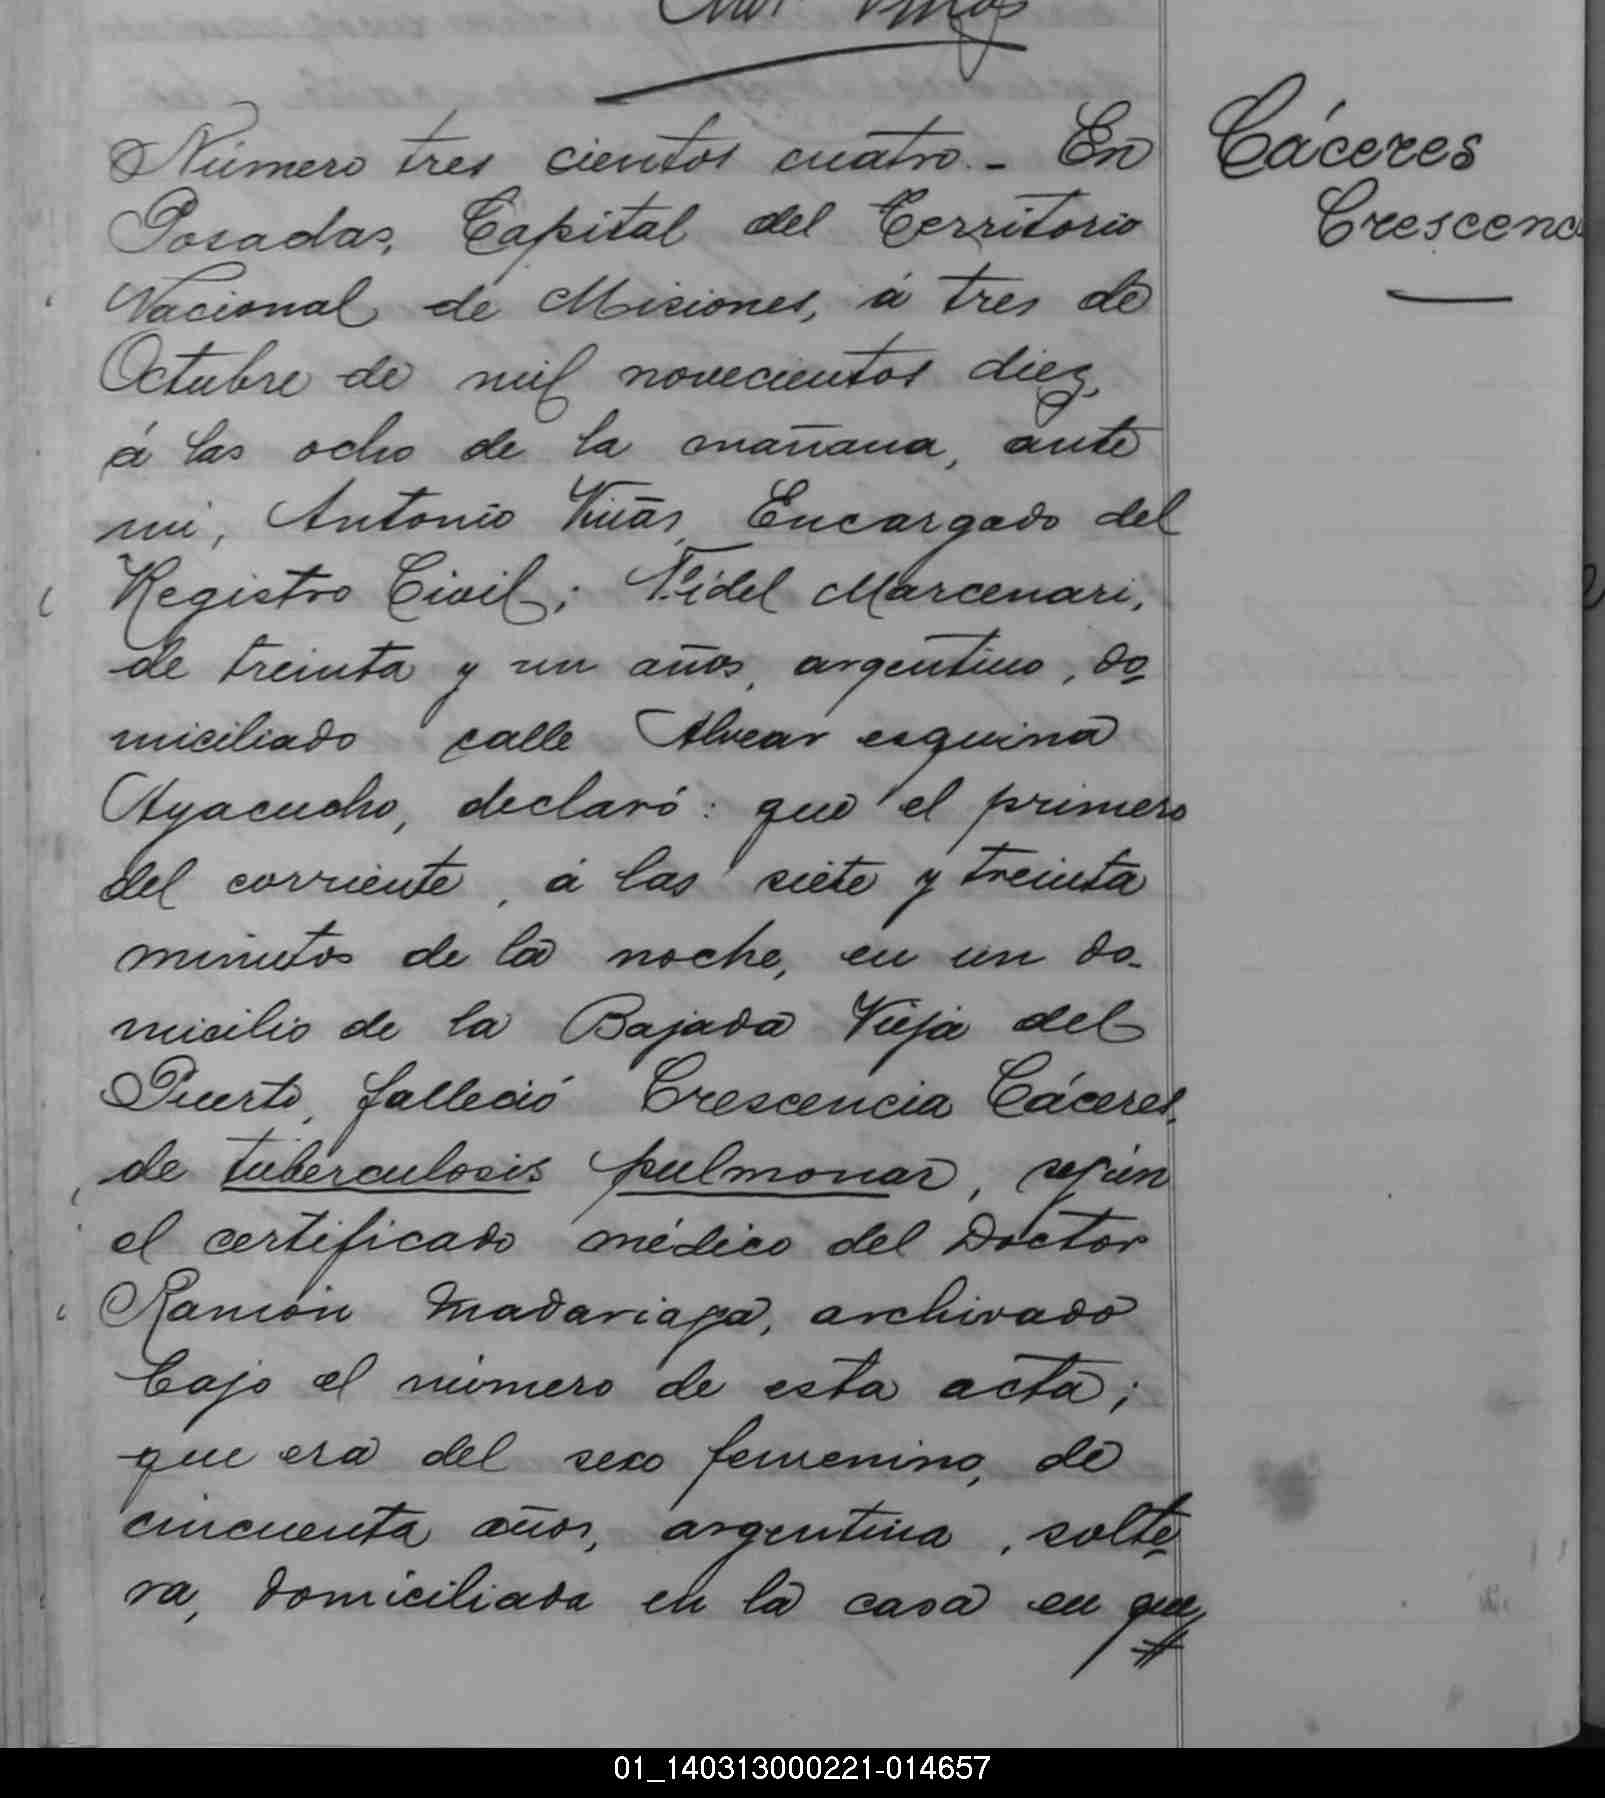 Número tres cientos cuatro. - En
Posadas, Capital del Territorio
Nacional de Misiones, á tres de
Octubre de mil novecientos diez,
á las ocho de la mañana, ante
mi, Antonio Viñas, Encargado del
Registro Civil; Fidel Marcenari,
de treinta y un años, argentino, do-
miciliado calle Alvear esquina
Ayacucho, declaró: que el primero
del corriente, á las siete y treinta
minutos de la noche, en un do-
micilio de la Bajada Vieja del
Puerto, falleció Crescencia Cáceres,
de tuberculosis pulmonar, según
el certificado médico del Doctor
Ramón Madariaga, archivado
bajo el número de esta acta;
que era del sexo femenino, de
cincuenta años, argentina, solte-
ra, domiciliada en la casa en que
Cáceres
Crescenc
01_140313000221-014657